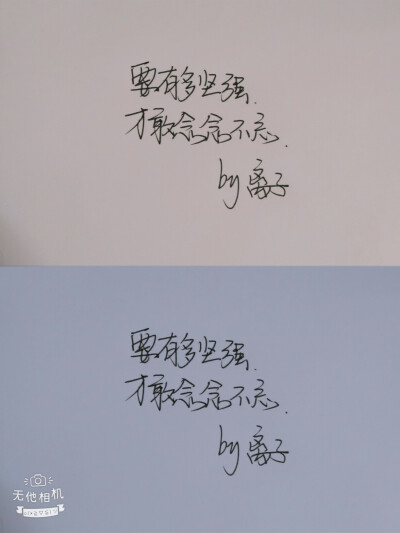 要有多坚强.
才敢念念不忘.
by 离子
要有多坚强.
才敢念念不忘.
by 离子
无他相机